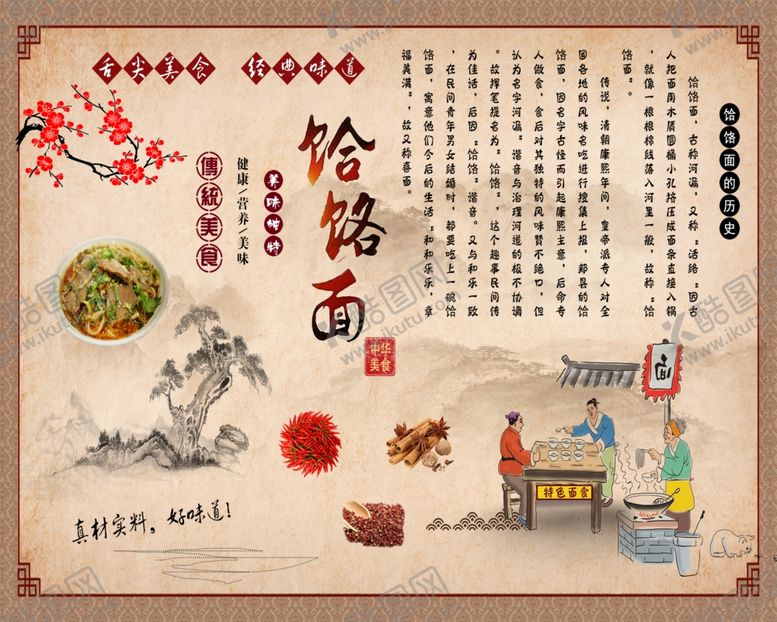 舌尖美食 经典味道
饸饹面的历史
饸饹面，古称河漏，又称"活络"因古
人把面用木质圆桶小孔挤压成面条直接入锅
，就像一根根棉线落入河里一般，故称"饸
饹面"。
传说，清朝康熙年间，皇帝派专人对全
国各地的风味名吃进行搜集上报，郏县的饸
饹面，因名字古怪而引起康熙主意，后命专
人做食，食后对其独特的风味赞不绝口，但
认为名字河漏"谐音与治理河道的极不协调
。故挥笔提名为"饸饹"，这个趣事民间传
为佳话，后因"饸饹"谐音。又与和乐一致
，在民间青年男女结婚时，都要吃上一碗饸
饹面，寓意他们今后的生活"和和乐乐，幸
福美满"，故又称喜面。
饸饹面
中华美食
美味独特
健康/营养/美味
傳統美食
面
特色面食
真材实料，好味道！
酷图网
www.ikutu.com